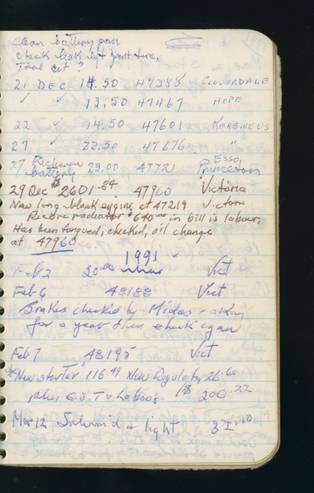 Clean battery posts
check leak
Tool kit ?
21 DEC 14.50 47388 CLOVERDALE
" " 12.50 47467 HOPE
22 " 14.50 47601 KEREMEUS
27 " 22.50 47676 "
27 battery 23.00 4772 ESSO Princeton
29 Dec $2601.84 47960 Victoria
New long block engine at 47219 Victoria
Recore radiator $640.00 in bill is labour.
Has been torqued, checked, oil change
at 47960
1991
Feb 2 20.00 Vict
Feb 6 48188 Vict
Brakes checked by Midas - okay
for a year then check again
Feb 7 48195 Vict
*New starter 116.49 New Regulator 26.60
plus G.S.T + Labour 200.22
Mar 12 + light